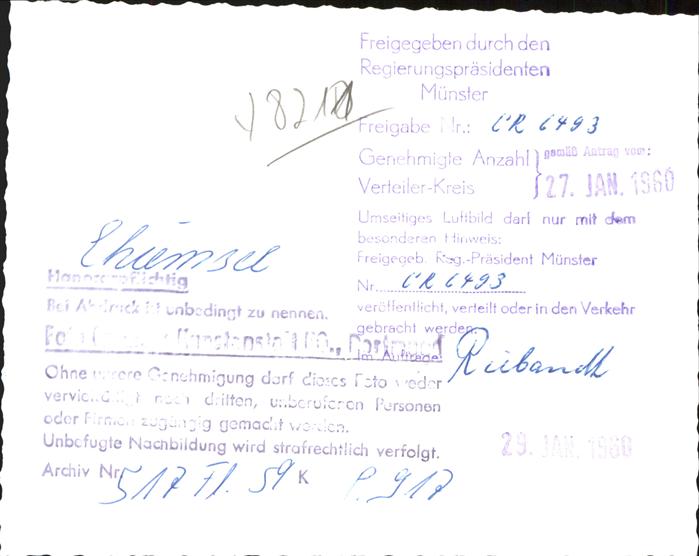 Freigegeben durch den
Regierungspräsidenten
Münster
Freigabe Nr.: CR 6493
Genehmigte Anzahl
Verteiler-Kreis
gemäß Antrag vom:
27. JAN. 1960
Umseitiges Luftbild darf nur mit dem
besonderen Hinweis:
Freigegeb. Reg.-Präsident Münster
Nr. CR 6493
veröffentlicht, verteilt oder in den Verkehr
gebracht werden.
Im Auftrage:
29. JAN. 1960
Chiemsee
Honorarpflichtig
Bei Abdruck ist unbedingt zu nennen.
Foto Kunstanstalt KG., Dortmund
Ohne unsere Genehmigung darf dieses Foto weder
vervielfältigt noch dritten, unberufenen Personen
oder Firmen zugängig gemacht werden.
Unbefugte Nachbildung wird strafrechtlich verfolgt.
Archiv Nr. 517 Fl. 59 K P. 917